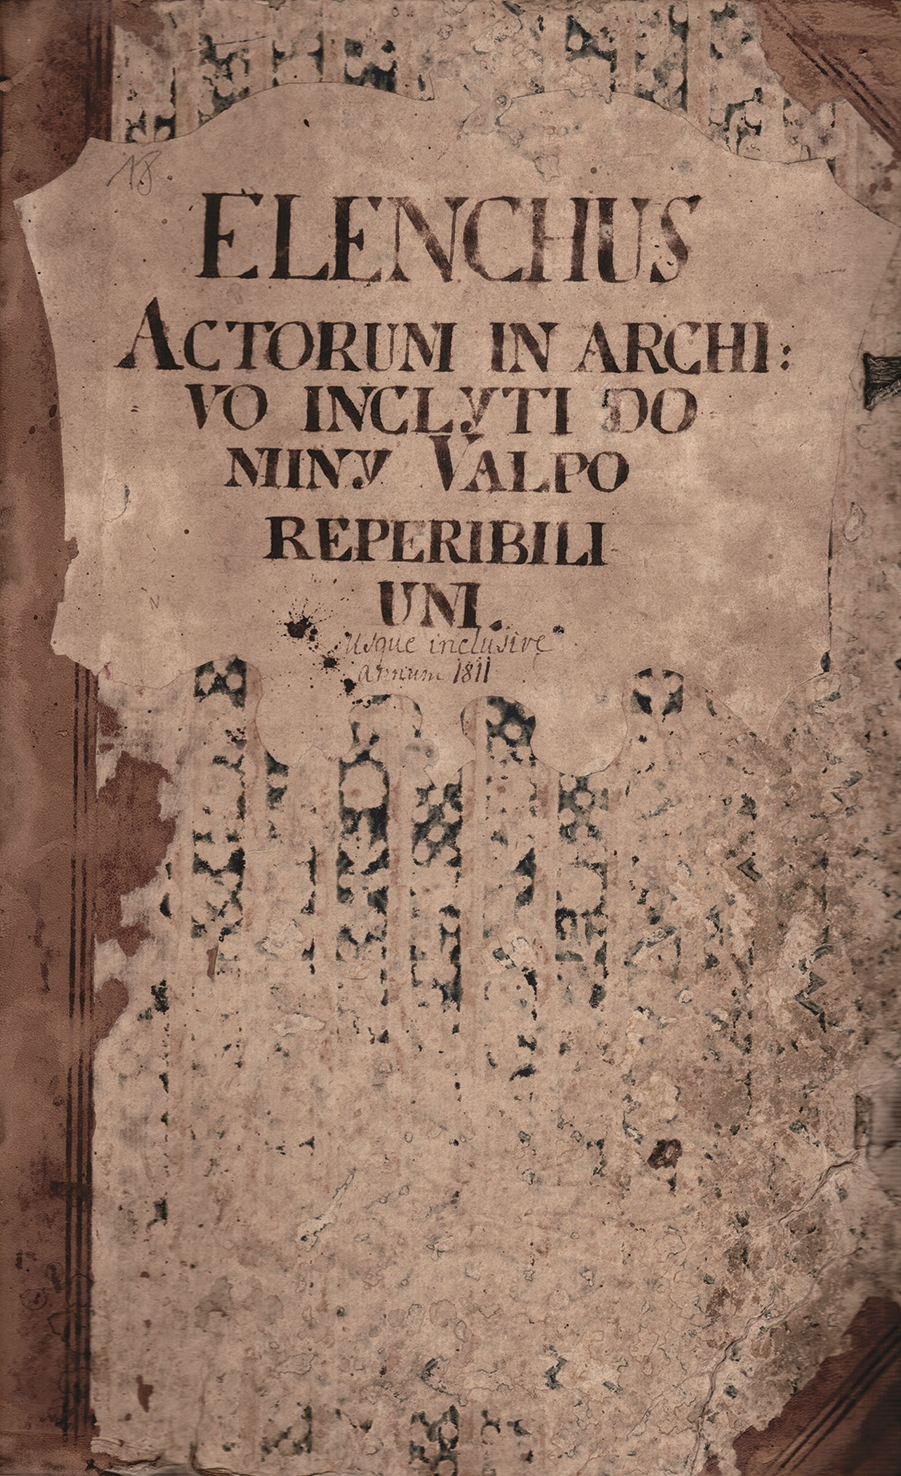 18
ELENCHUS
ACTORUM IN ARCHI:
VO INCLYTI DO
MINY VALPO
REPERIBILI
UM.
Usque inclusive
annum 1811